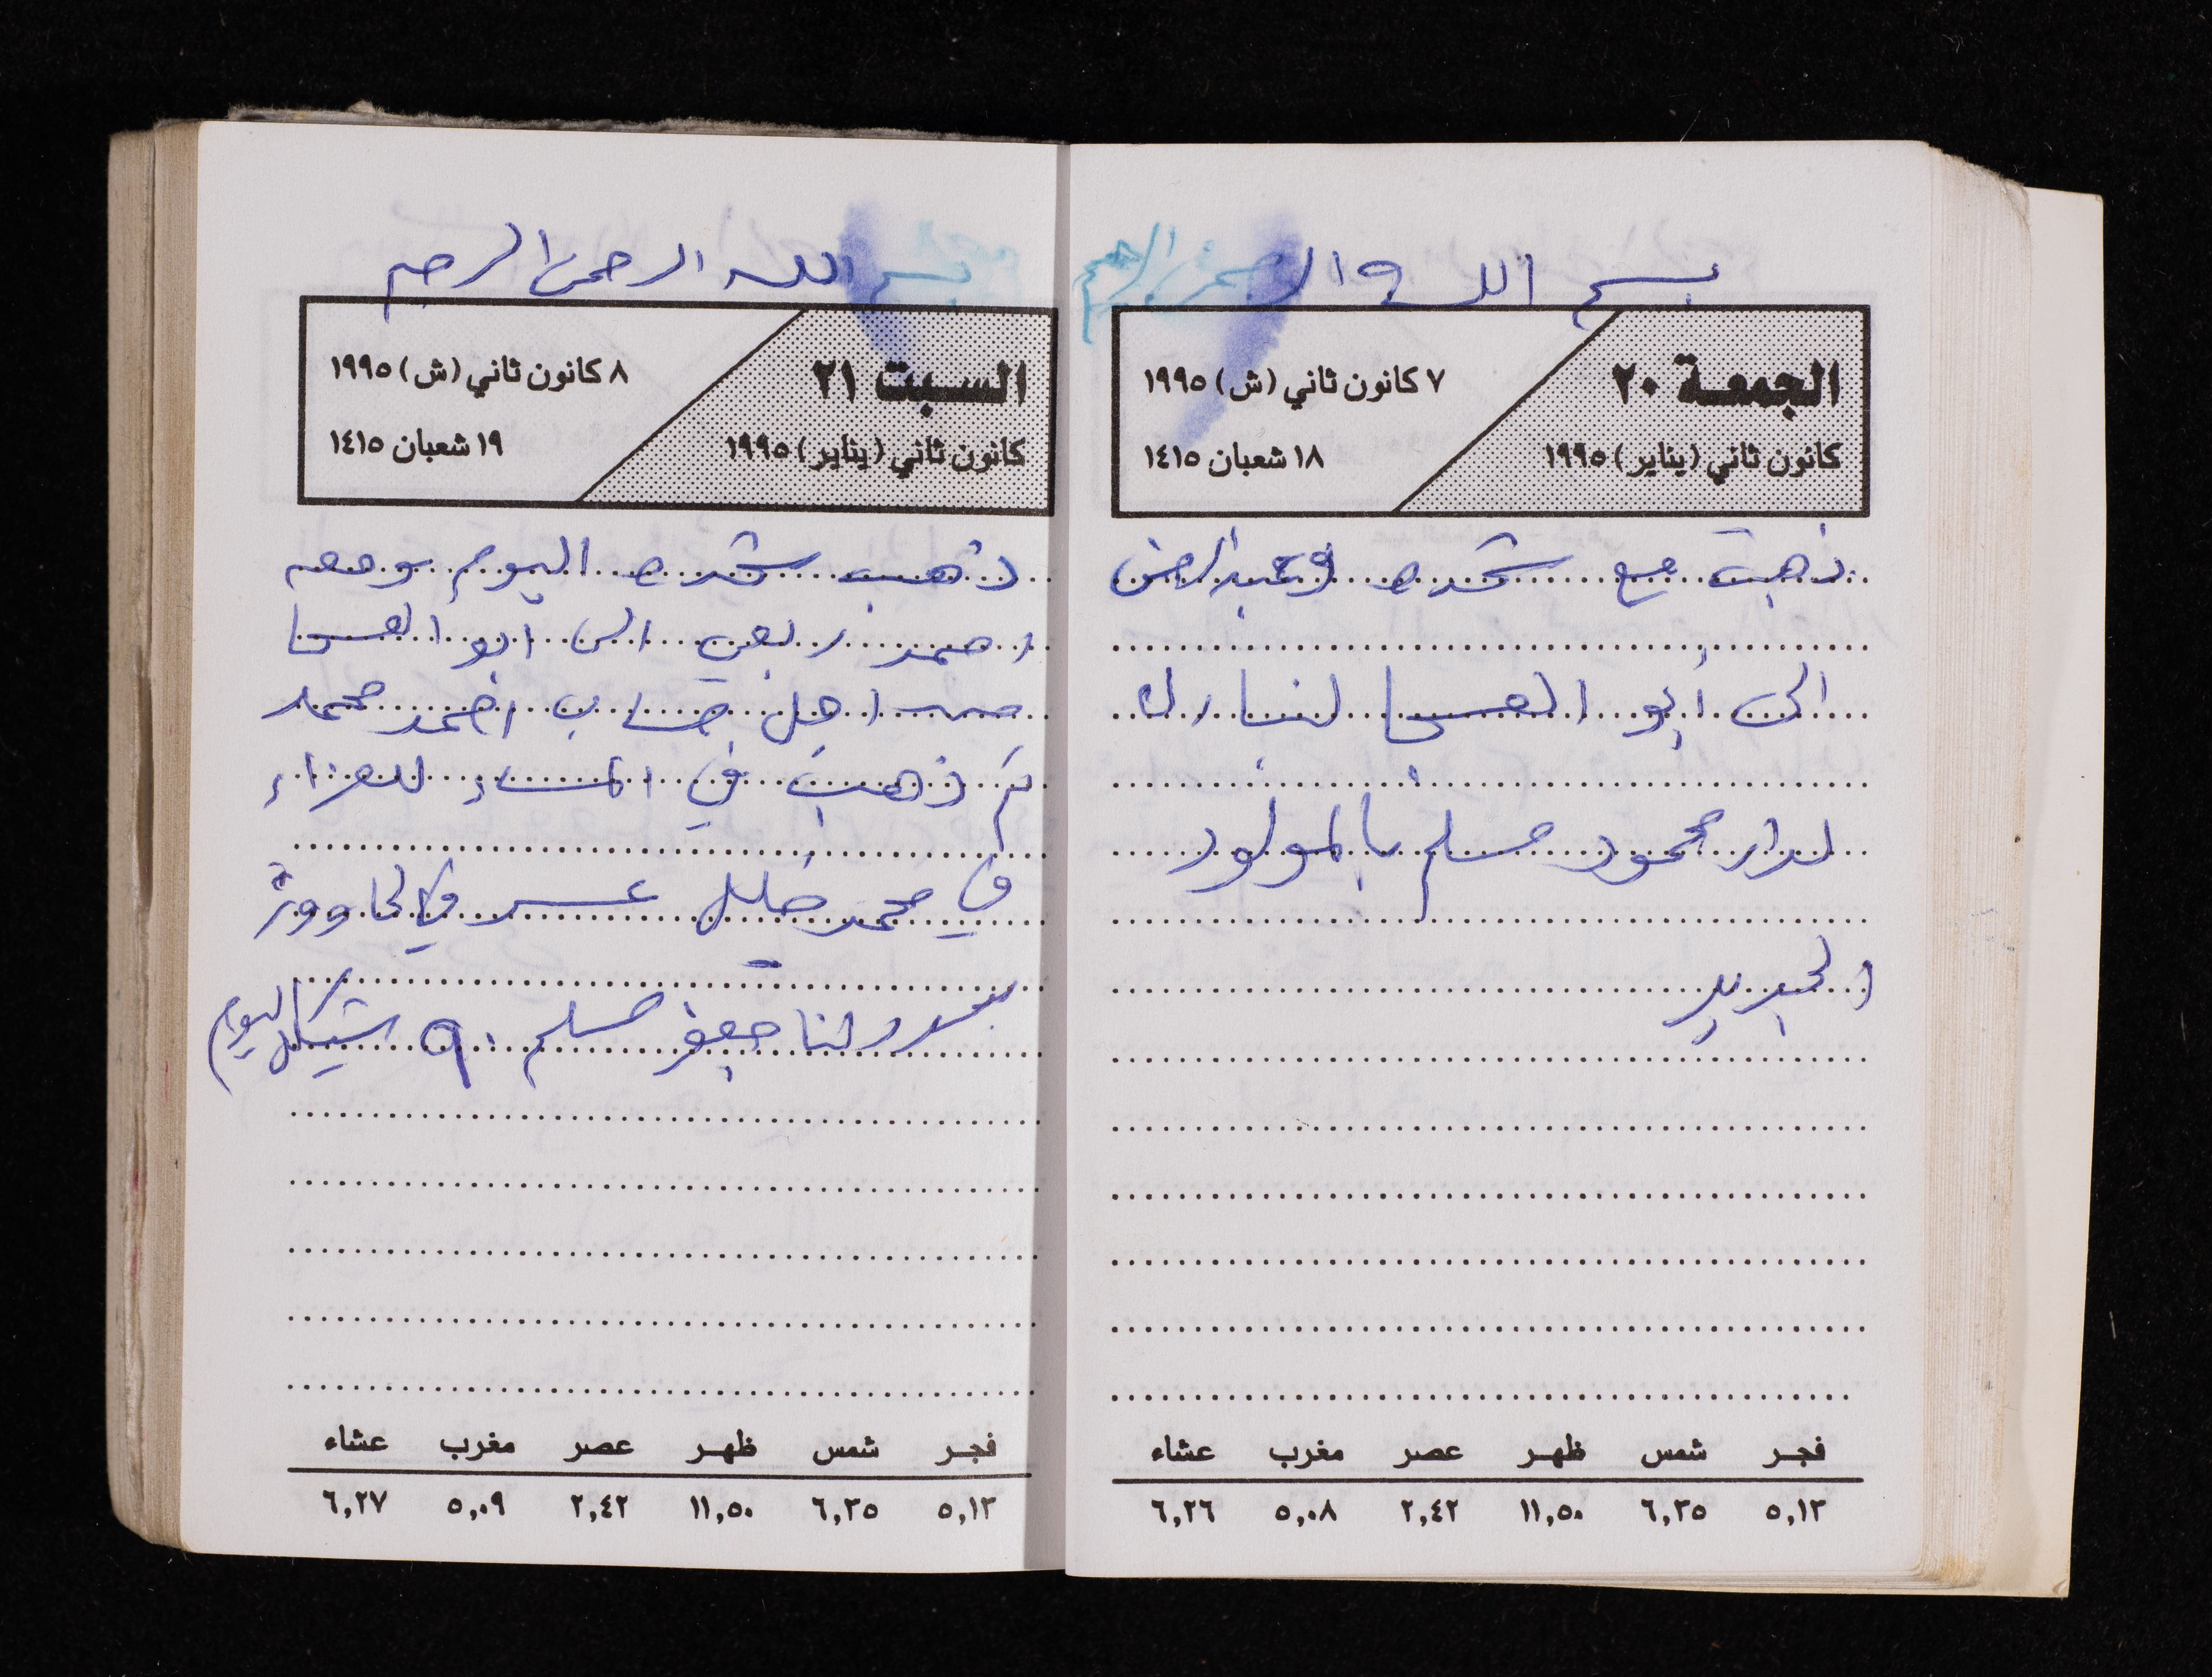 بسم الله الرحمن الرحيم
الجمعة ٢٠
كانون ثاني (يناير) ١٩٩٥
٧ كانون ثاني (ش) ١٩٩٥
١٨ شعبان ١٤١٥
ذهبت مع شحده وعبد الرحمن
الى أبو العسجا لنبارك
لدار محمود مسلم بالمولود
الجديد
فجر شمس ظهر عصر مغرب عشاء
٥,١٣ ٦,٣٥ ١١,٥٠ ٢,٤٢ ٥,٠٨ ٦,٢٦
بسم الله الرحمن الرحيم
السبت ٢١
كانون ثاني (يناير) ١٩٩٥
٨ كانون ثاني (ش) ١٩٩٥
١٩ شعبان ١٤١٥
ذهب شحده اليوم ومعه
احمد ربعي الى ابو العسجا
من اجل حساب احمد محمد
ثم ذهبت في المساء للعزاء
في محمد خليل في الحاووز
لنا جعفر مسلم ٩٠ شيكل اليوم
فجر شمس ظهر عصر مغرب عشاء
٥,١٣ ٦,٣٥ ١١,٥٠ ٢,٤٢ ٥,٠٩ ٦,٢٧